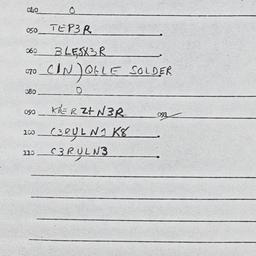 040 0
050 TEP3R
060 3LESX3R
070 CIN)OGLE SOLDER
080 0
090 KHERZTN3R
100 C3RULN1 K8
110 C3RULN3